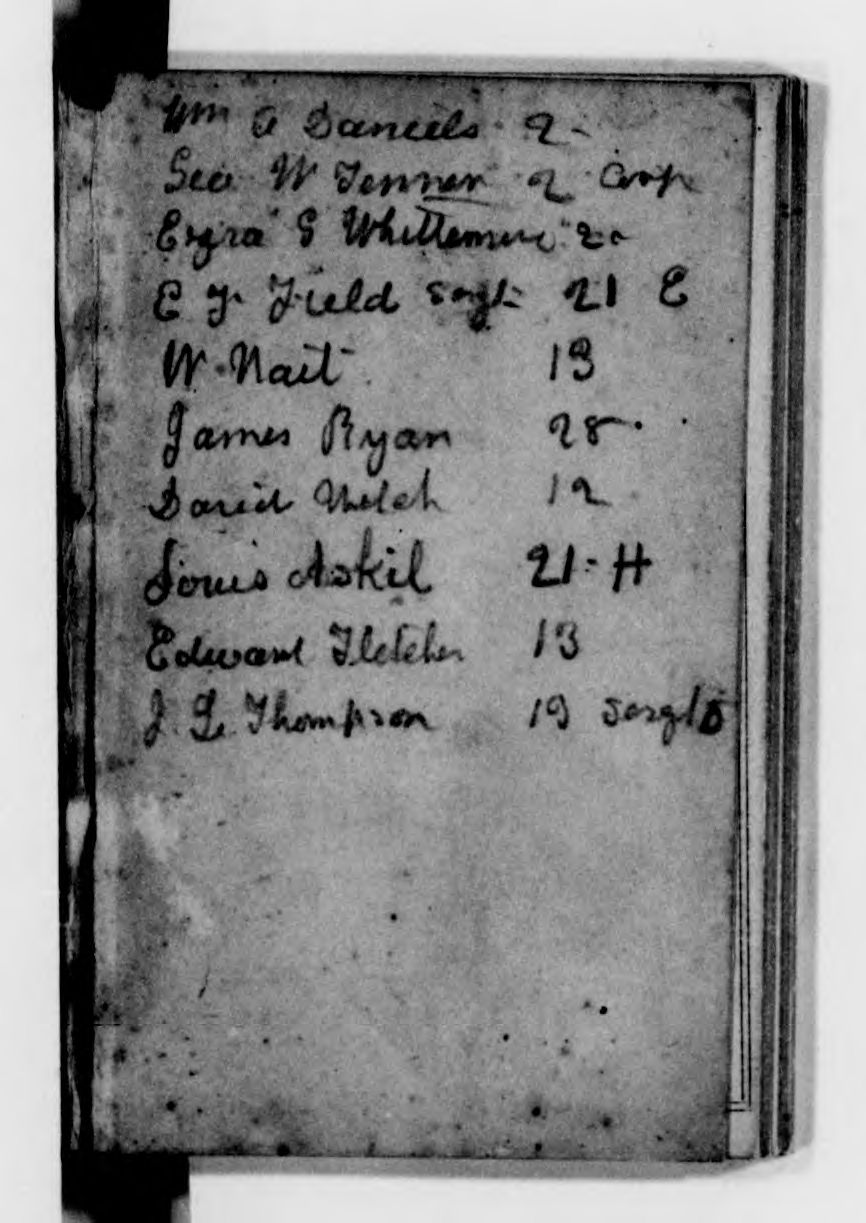 Wm A Daniels 2
Geo W Fenner 2 Corp
Ezra S Whittemore 2
E F Field Sergt 21 E
W Nait 13
James Ryan 28
David Welch 12
Louis Askil 21-H
Edward Fletcher 13
J. L. Thompson 19 Sergt